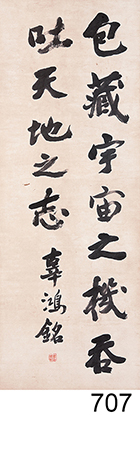 包藏宇宙之機吞
吐天地之志
辜鴻銘
707